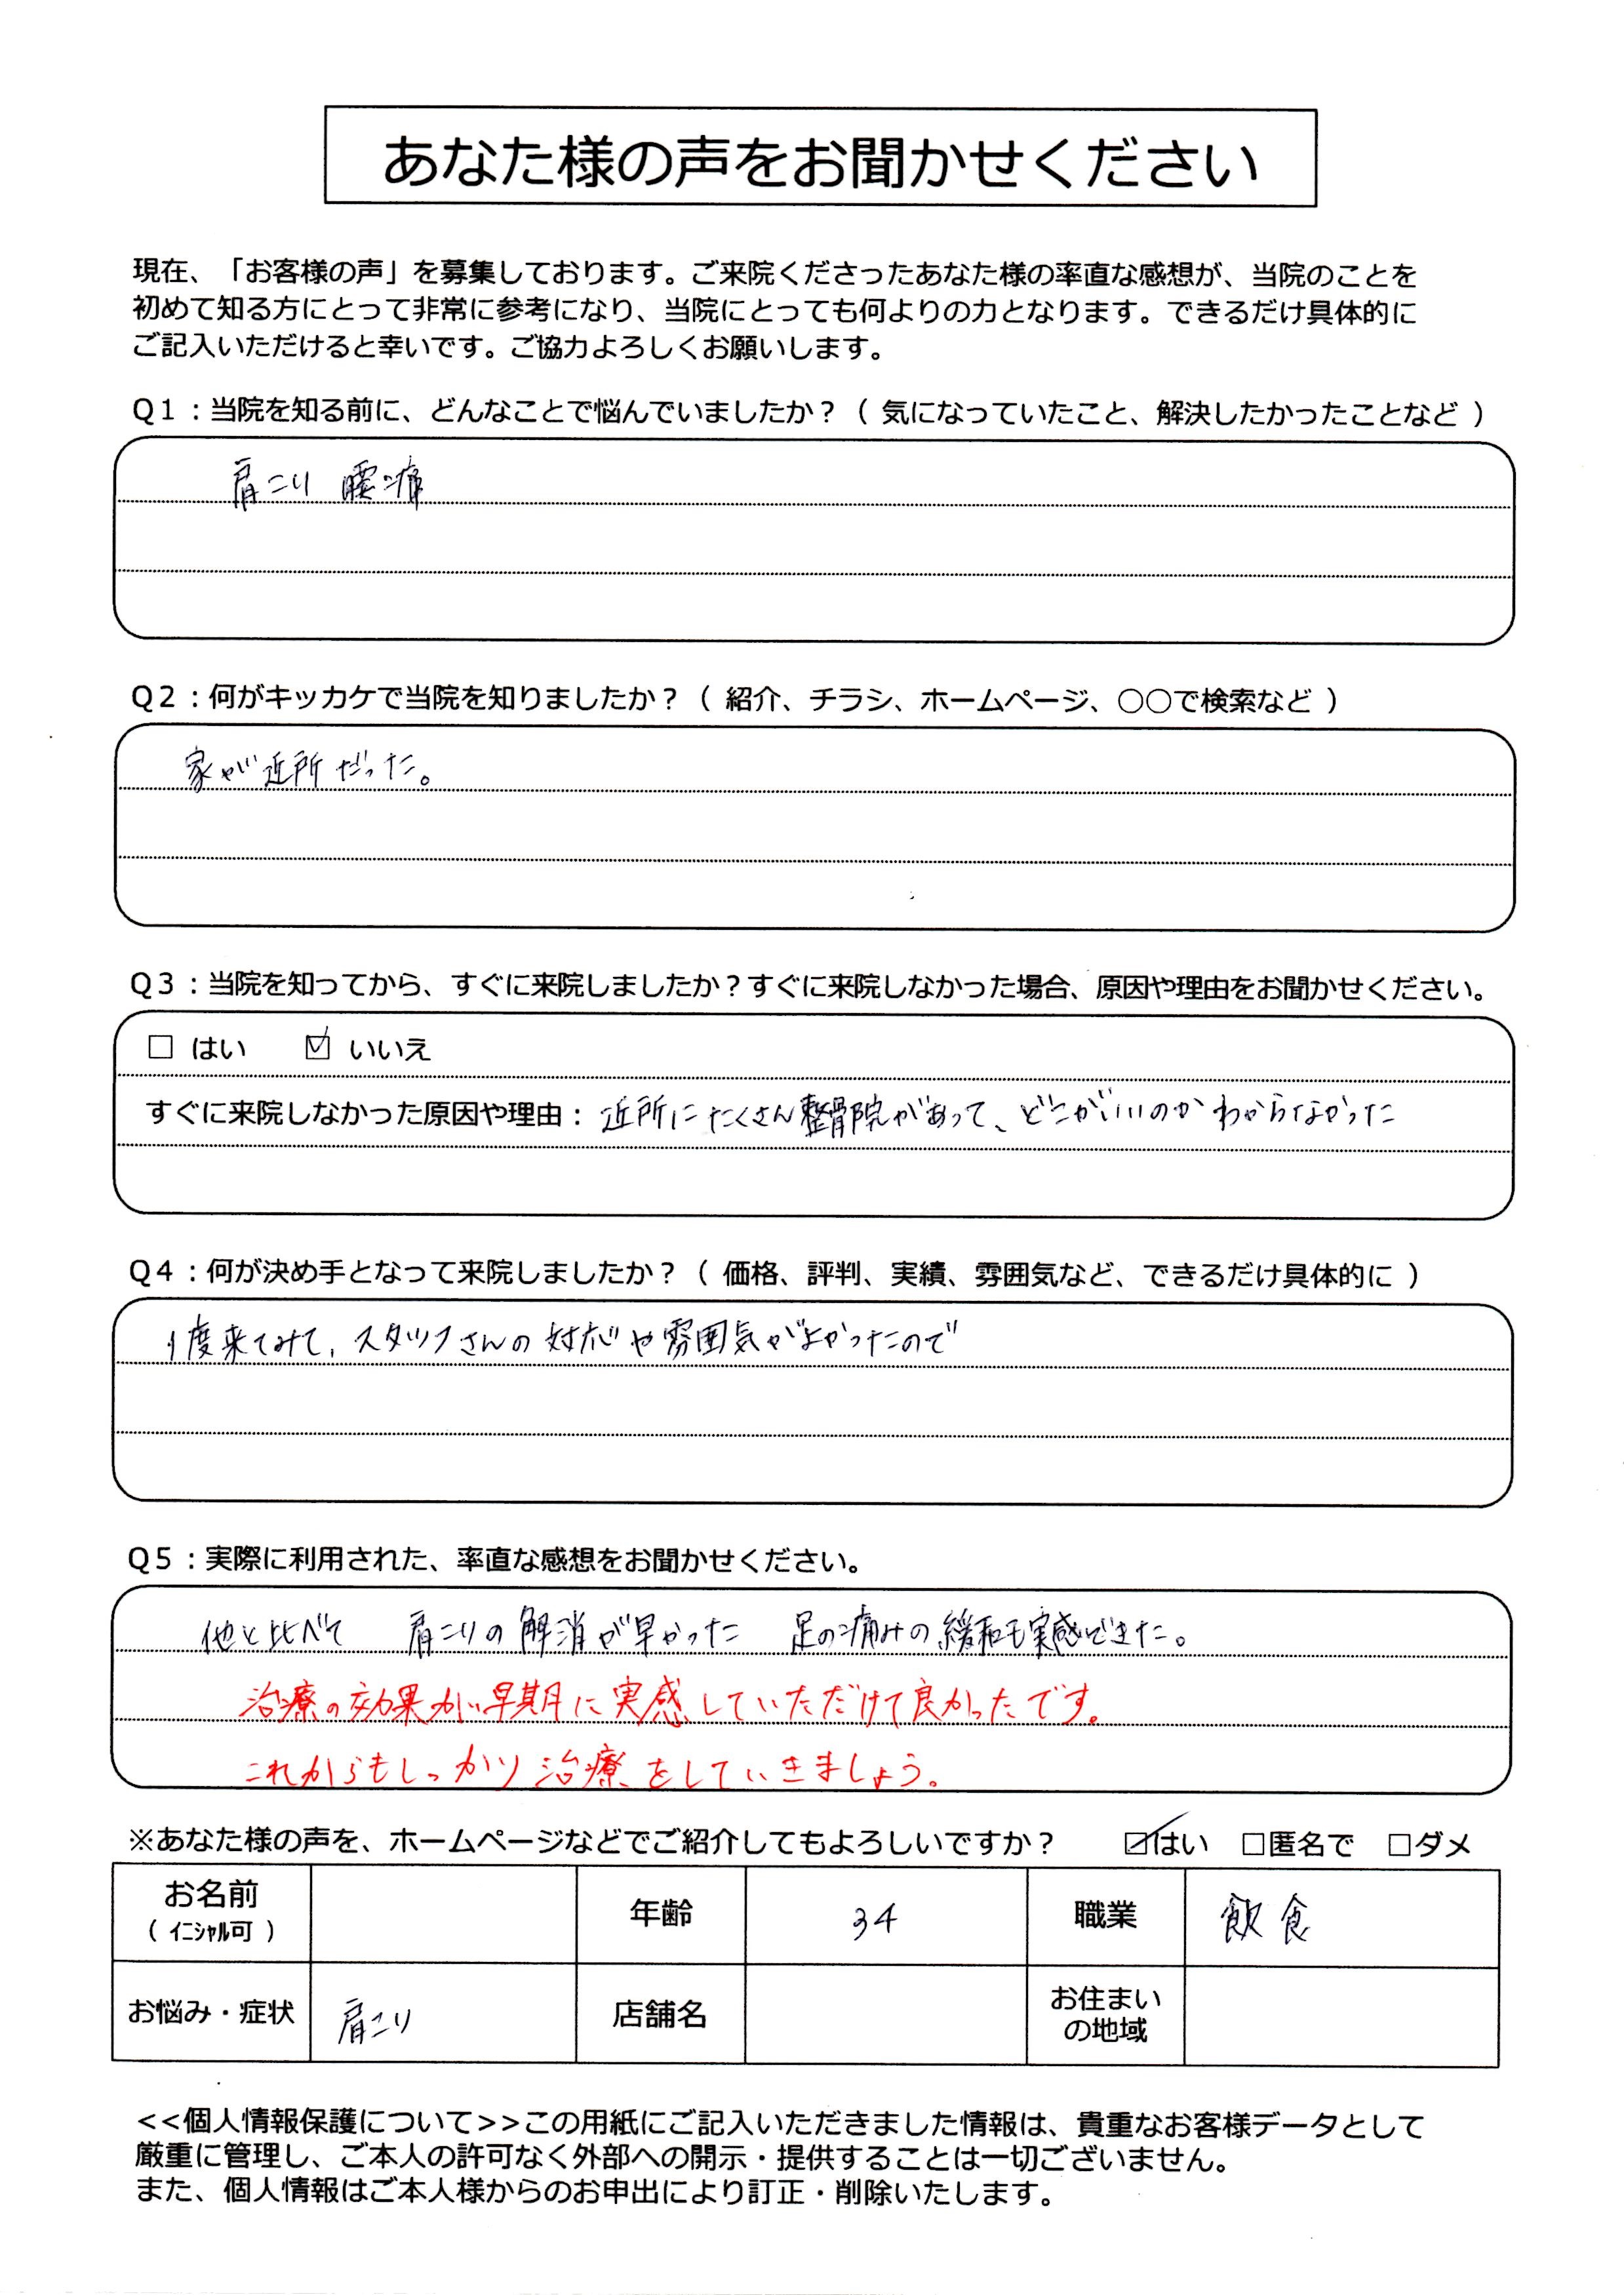 あなた様の声をお聞かせください
現在、「お客様の声」を募集しております。ご来院くださったあなた様の率直な感想が、当院のことを
初めて知る方にとって非常に参考になり、当院にとっても何よりの力となります。できるだけ具体的に
ご記入いただけると幸いです。ご協力よろしくお願いします。
Q1：当院を知る前に、どんなことで悩んでいましたか？（ 気になっていたこと、解決したかったことなど ）
肩こり 腰痛
Q2：何がキッカケで当院を知りましたか？（ 紹介、チラシ、ホームページ、○○で検索など ）
家が近所だった。
Q3：当院を知ってから、すぐに来院しましたか？すぐに来院しなかった場合、原因や理由をお聞かせください。
□ はい ☑ いいえ
すぐに来院しなかった原因や理由：近所にたくさん整骨院があって、どこがいいのかわからなかった
Q4：何が決め手となって来院しましたか？（ 価格、評判、実績、雰囲気など、できるだけ具体的に ）
1度来てみて、スタッフさんの対応や雰囲気がよかったので
Q5：実際に利用された、率直な感想をお聞かせください。
他と比べて 肩こりの解消が早かった 足の痛みの緩和も実感できた。
治療の効果が早期に実感していただけて良かったです。
これからもしっかり治療をしていきましょう。
※あなた様の声を、ホームページなどでご紹介してもよろしいですか？ ☑はい □匿名で □ダメ
お名前（ｲﾆｼｬﾙ可） 年齢 34 職業 飲食
お悩み・症状 肩こり 店舗名 お住まいの地域
<<個人情報保護について>>この用紙にご記入いただきました情報は、貴重なお客様データとして
厳重に管理し、ご本人の許可なく外部への開示・提供することは一切ございません。
また、個人情報はご本人様からのお申出により訂正・削除いたします。